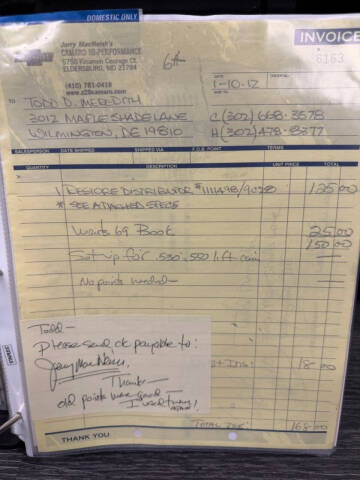 DOMESTIC ONLY
Jerry MacNeish's
CAMARO HI-PERFORMANCE
ELDERSBURG, MD 21784
(410) 781-0418
www.z28camaro.com
INVOICE
6163
6th
DATE
1-10-12
TO
TODD D. MEREDITH
3012 MAPLESHADE LANE
WILMINGTON, DE 19810
C (302) 668-3578
H (302) 478-8377
SALESPERSON DATE SHIPPED SHIPPED VIA F.O.B. POINT TERMS
QUANTITY DESCRIPTION UNIT PRICE TOTAL
1 RESTORE DISTRIBUTOR #1111498/9C28 125.00
* SEE ATTACHED SPECS
69 Book 25.00
150.00
Set up for .530-.550 lift cam —
No points needed — —
Todd —
Please send ck payable to:
Jerry MacNeish
Thanks —
old points were good
I used them again!
+ Ins: 18.00
TOTAL DUE: 168.00
THANK YOU